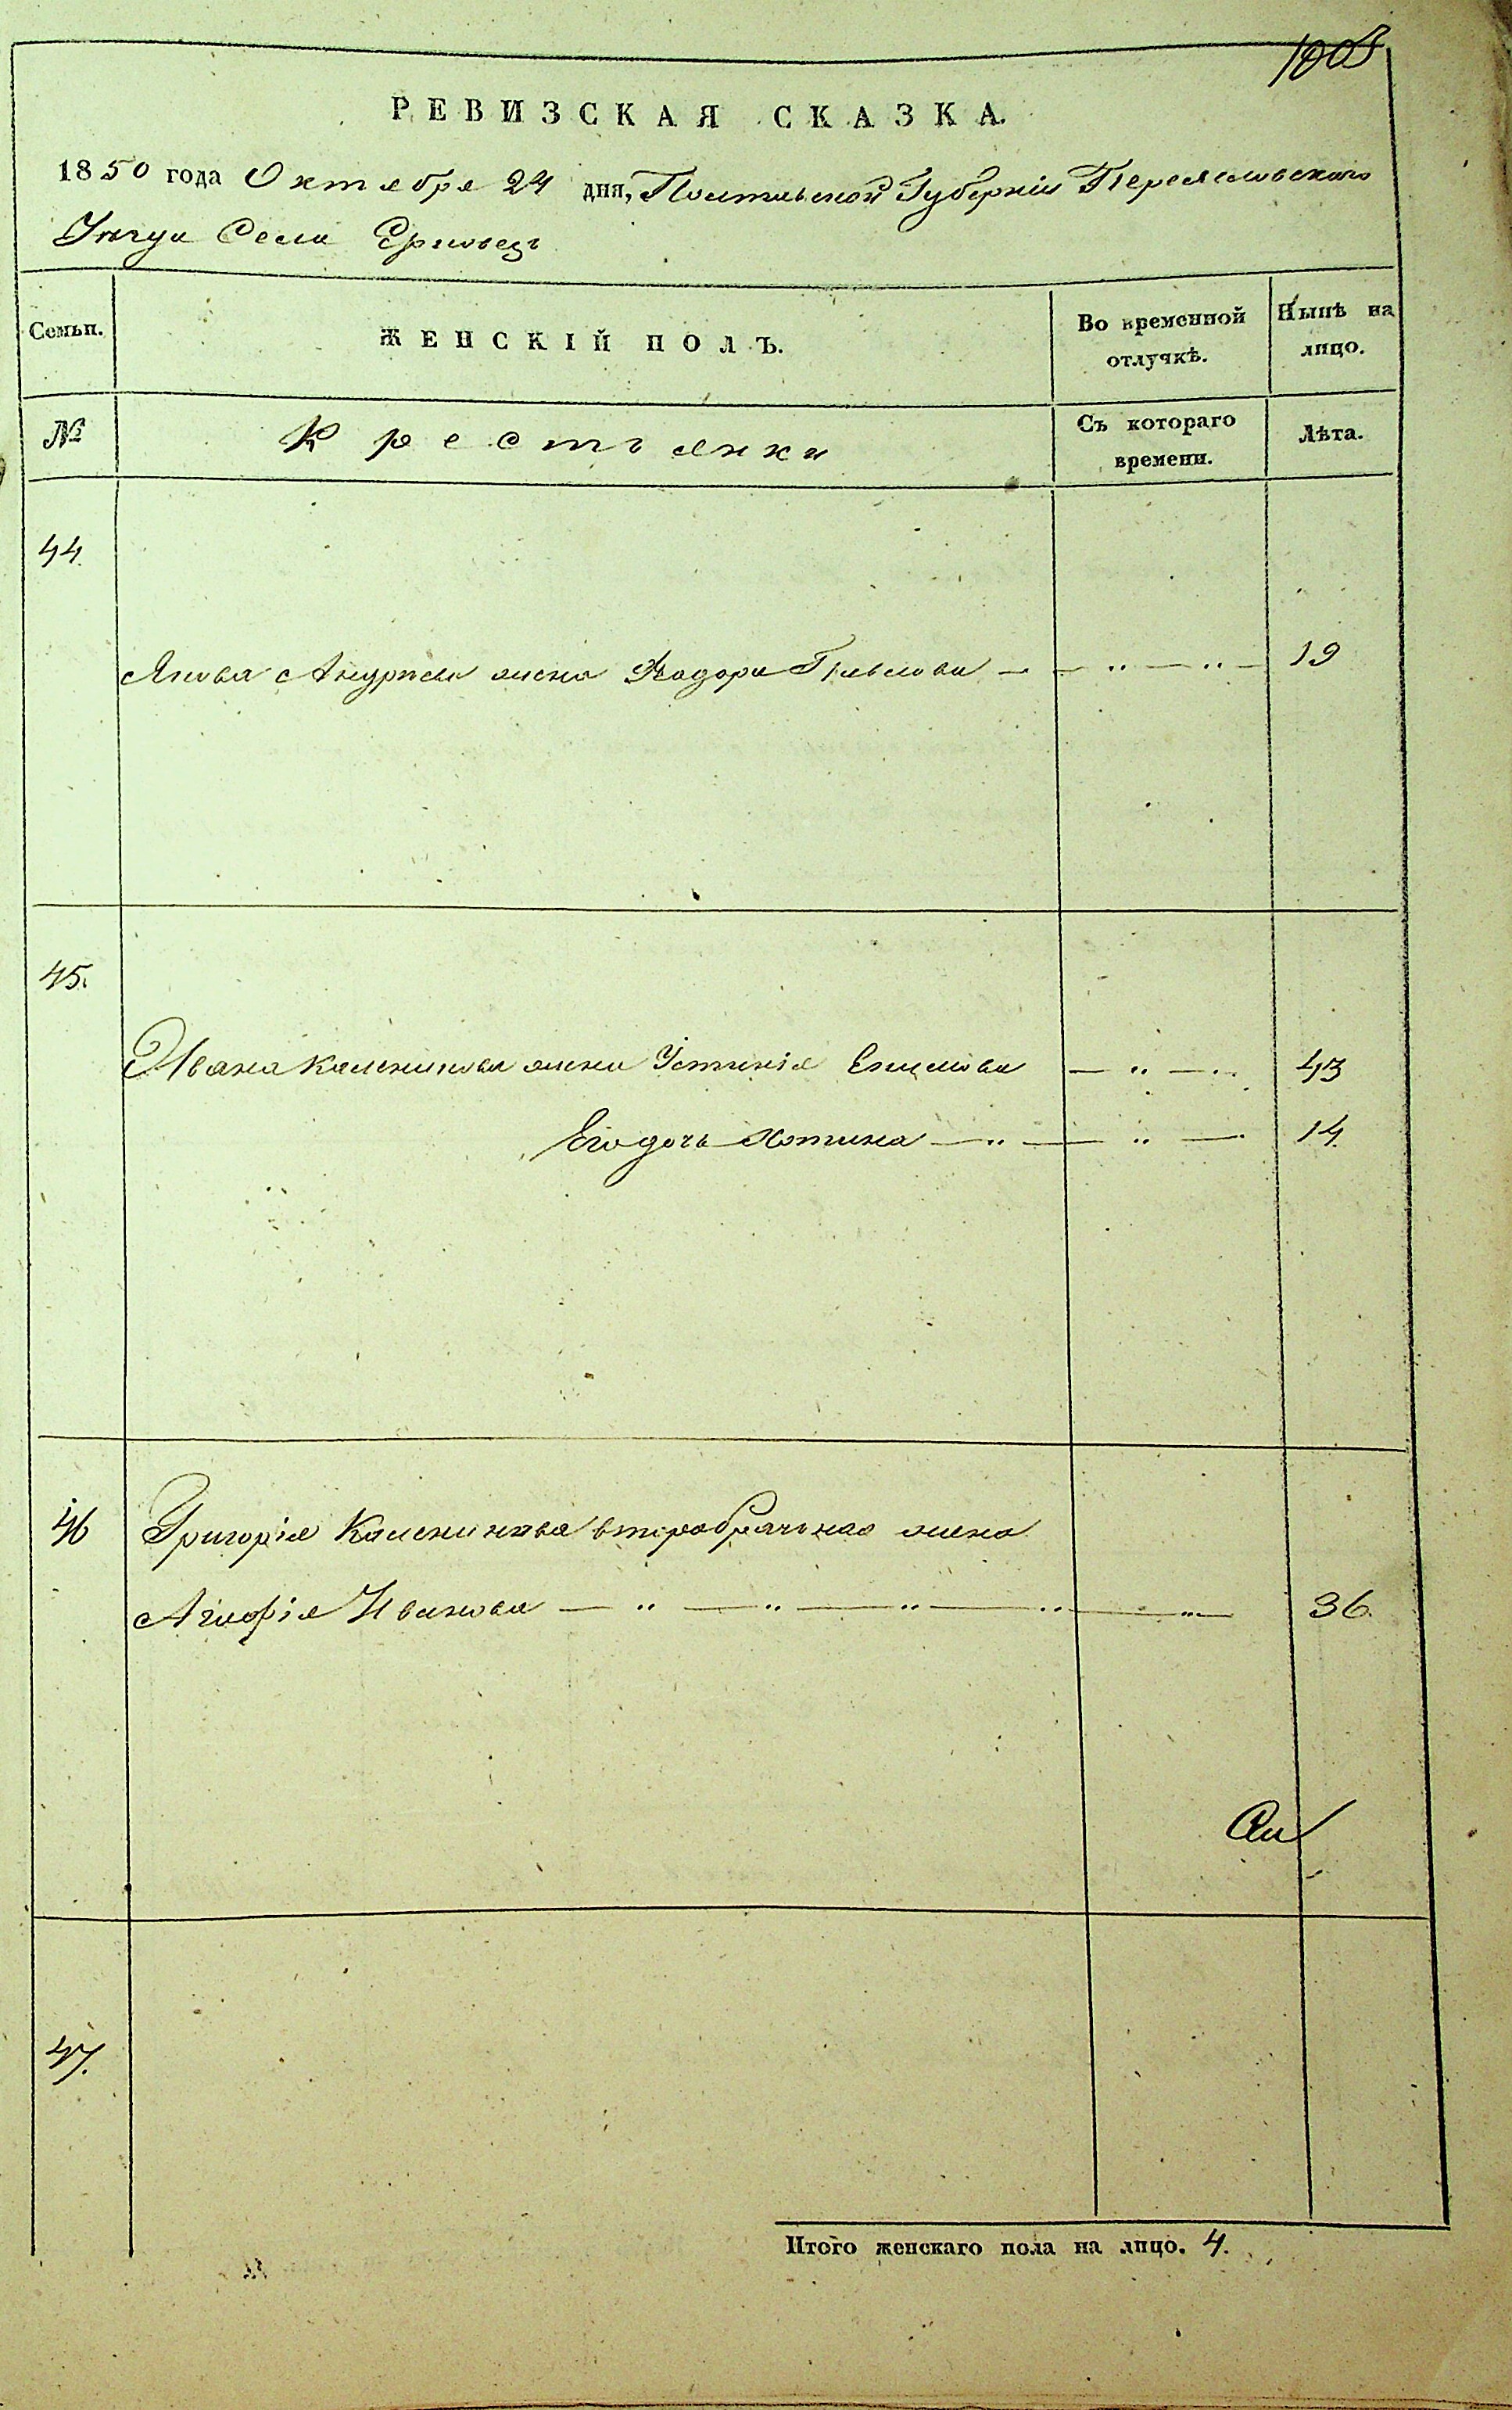 1003
РЕВИЗСКАЯ СКАЗКА.
1850 года Октября 24 дня, Полтавской Губерніи Переяславского
Уѣзда Села Ерковец
Семьи.
ЖЕНСКІЙ ПОЛЪ.
Во временной отлучкѣ.
Нынѣ на лицо.
№
Крестьянки
Съ котораго времени.
Лѣта.
44.
Якова Андреева жена Федора Павлова — — " — " — 19
45.
Ивана Каленикова жена Устинія — " — " 43
Его дочь Хотина — " — " — 14.
46 Григорія Каленикова второбрачная жена
Агафія Иванова — " — " — " — " — " — 36.
47.
Итого женскаго пола на лицо. 4.